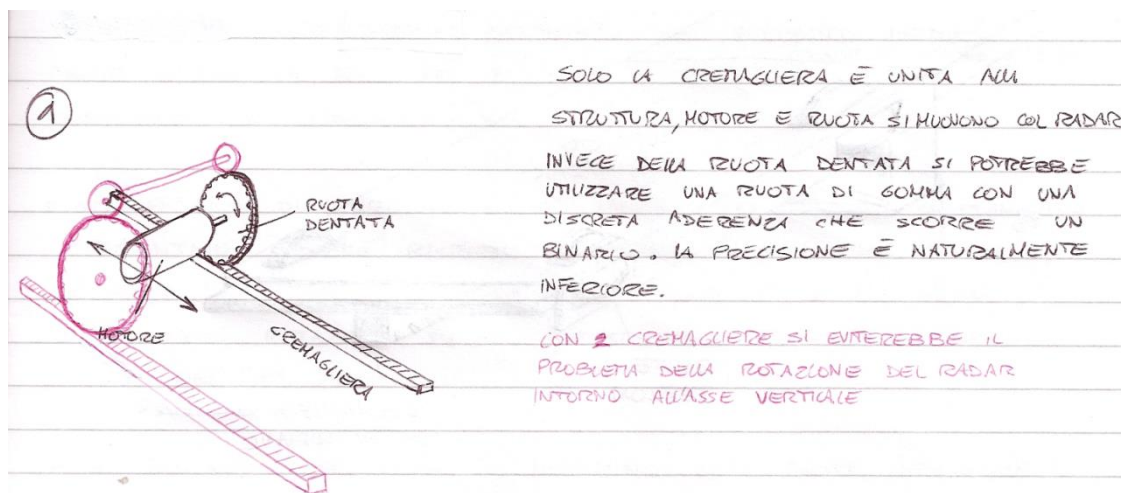 1
SOLO LA CREMAGLIERA È UNITA ALLA
STRUTTURA, MOTORE E RUOTA SI MUOVONO COL RADAR
INVECE DELLA RUOTA DENTATA SI POTREBBE
UTILIZZARE UNA RUOTA DI GOMMA CON UNA
DISCRETA ADERENZA CHE SCORRE UN
BINARIO. LA PRECISIONE È NATURALMENTE
INFERIORE.
CON 2 CREMAGLIERE SI EVITEREBBE IL
PROBLEMA DELLA ROTAZIONE DEL RADAR
INTORNO ALL'ASSE VERTICALE
RUOTA
DENTATA
MOTORE
CREMAGLIERA